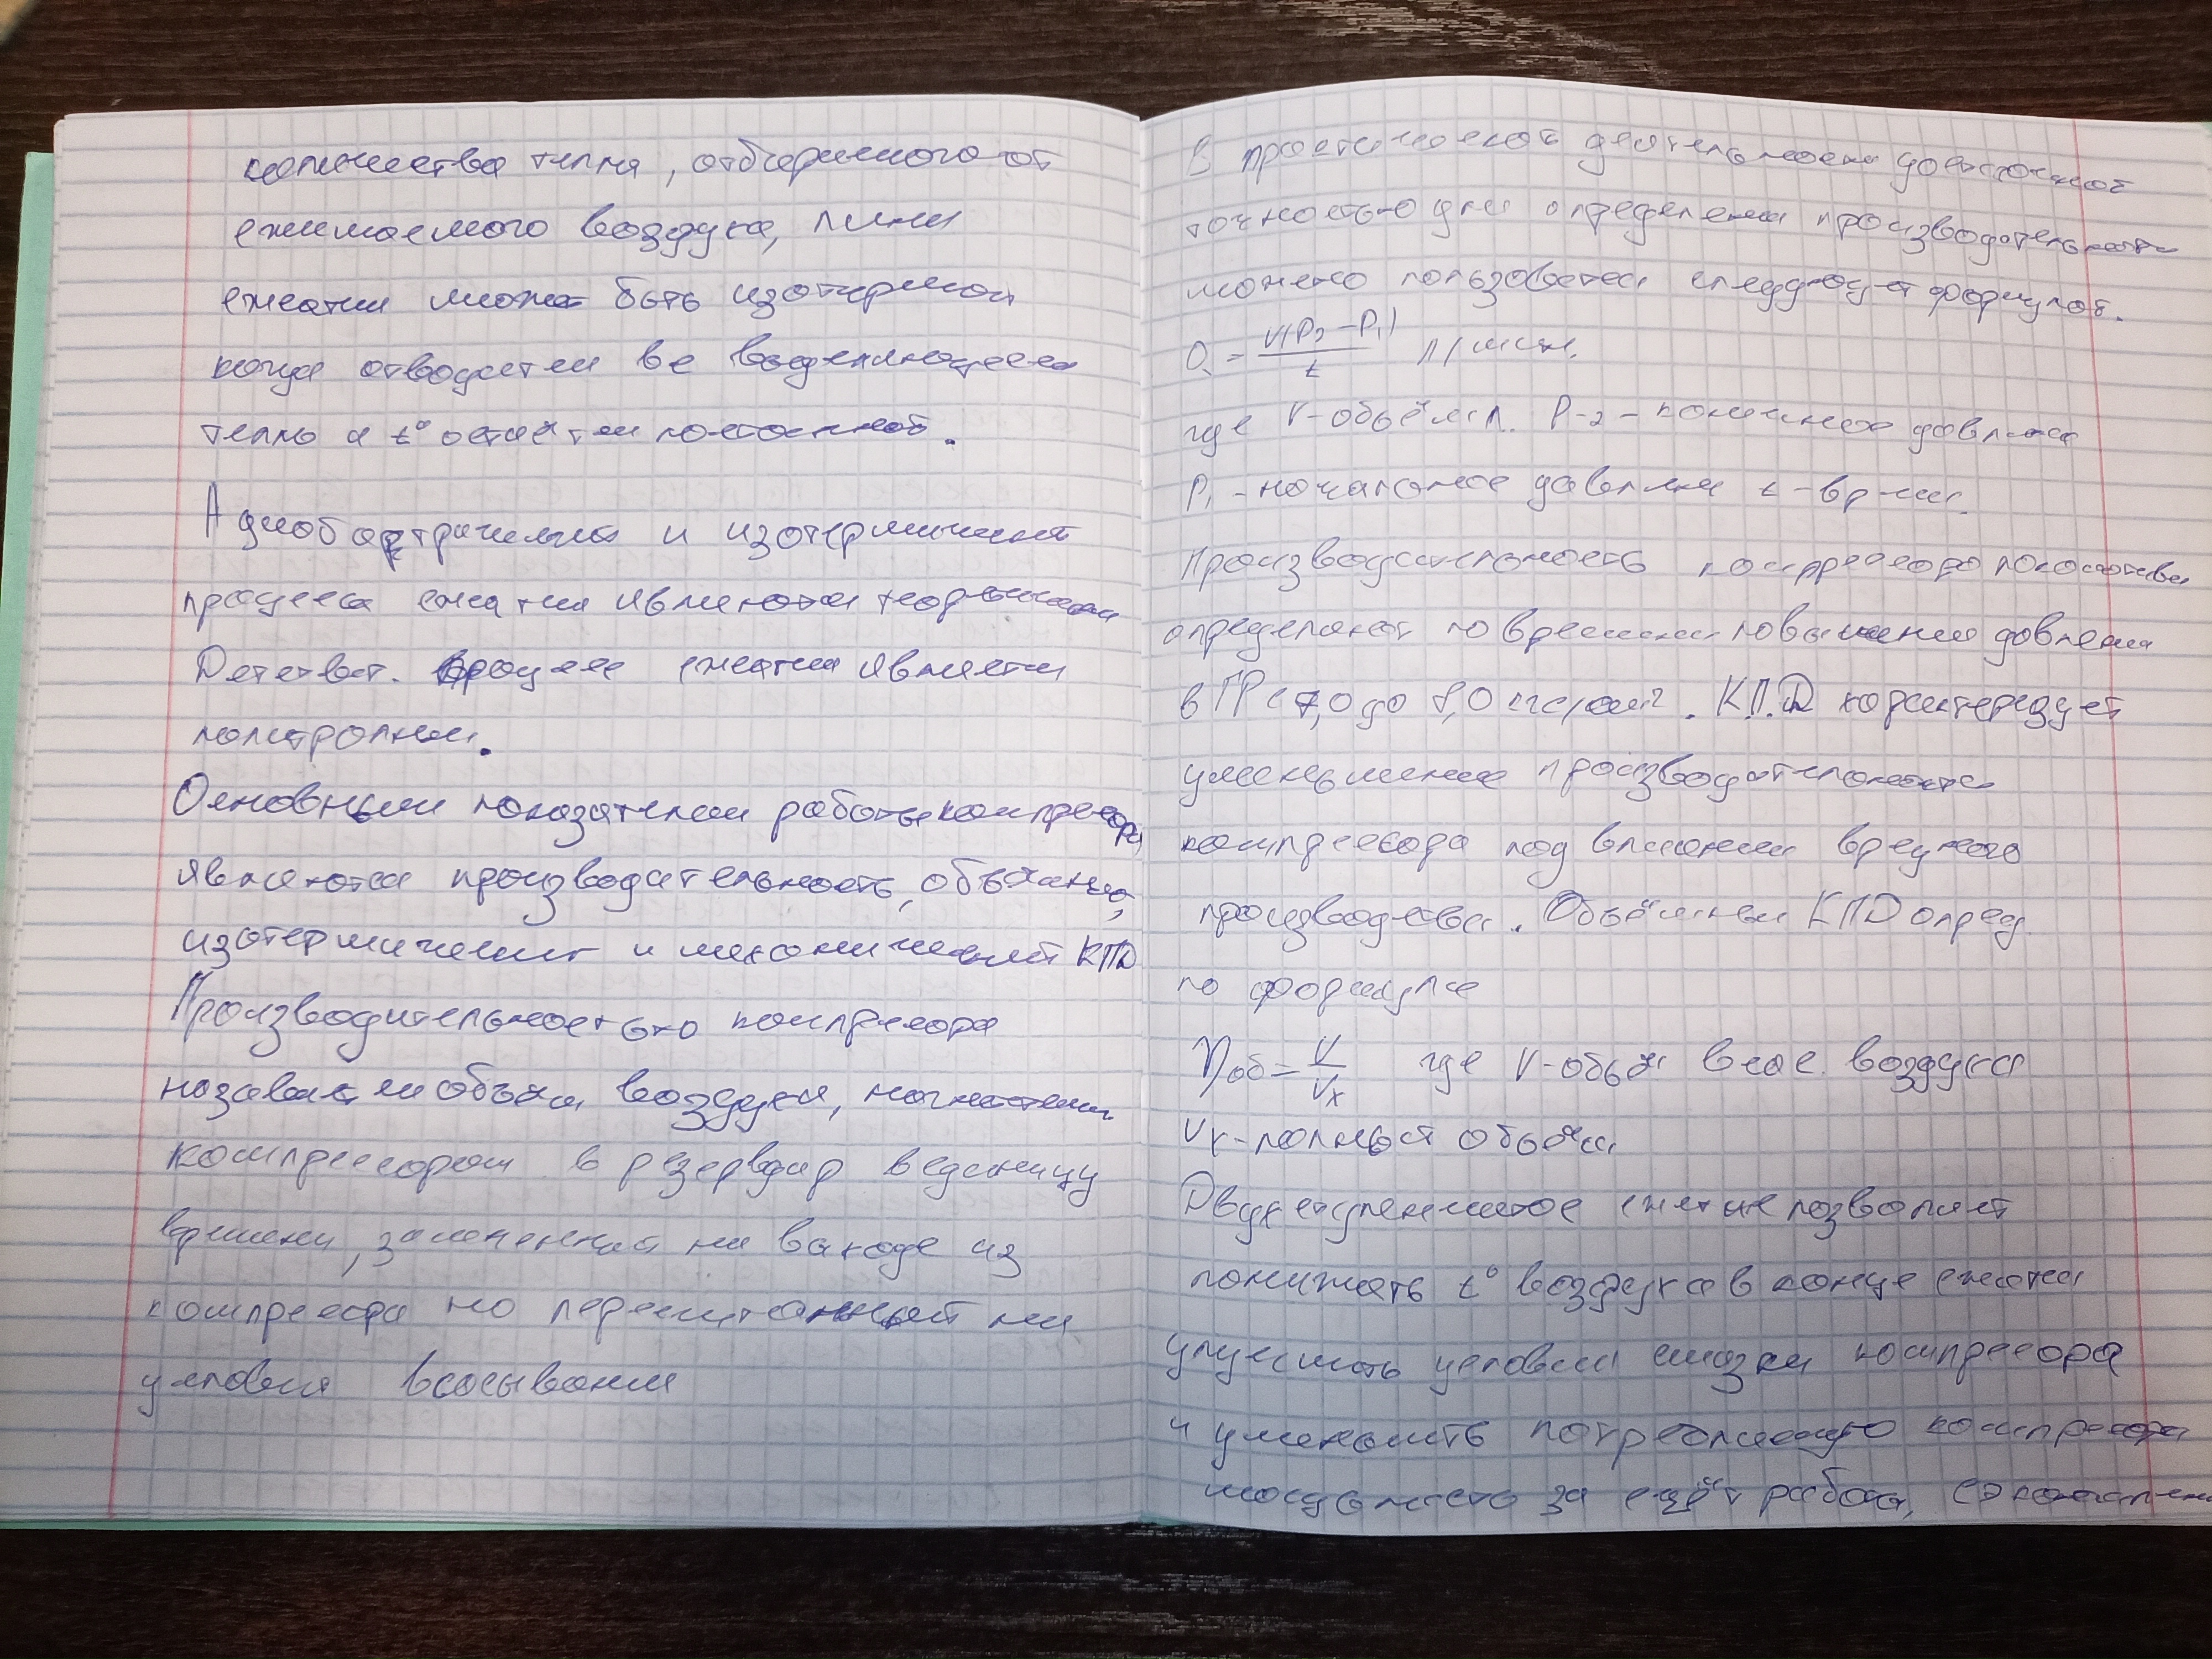 количества тепла, отбираемого от
сжимаемого воздуха, линия
сжатия может быть изотермой
когда отводится все выделяющееся
тепло а t° остаётся постоянной.
и изотермический
процессы сжатия являются теоретическими
Действит. процесс сжатия является
политропным.
Основными показателями работы компрессора
являются производительность, объёмный,
изотермический и механический КПД
Производительностью компрессора
называется объём воздуха, нагнетаемый
компрессором в резервуар в единицу
времени, замеренный на выходе из
компрессора но пересчитанный на
условия всасывания
В практической деятельности достаточной
точностью для определения производительности
можно пользоваться следующей формулой.
Q = V(P2 - P1) / t л/мин.
где V-объём л. P-2-конечное давление
P1-начальное давление t-время.
Производительность компрессора локомотива
определяют по времени повышения давления
в ГР с 7,0 до 8,0 кгс/см². К.П.Д характеризует
уменьшение производительности
компрессора под влиянием вредного
пространства. Объёмный КПД опред.
по формуле
ηоб = V/Vx где V-объём всас. воздуха
Vx-полный объём
Двухступенчатое сжатие позволяет
понижать t° воздуха в конце сжатия
улучшить условия смазки компрессора
и уменьшить потребляемую компрессором
мощность за счёт работы,